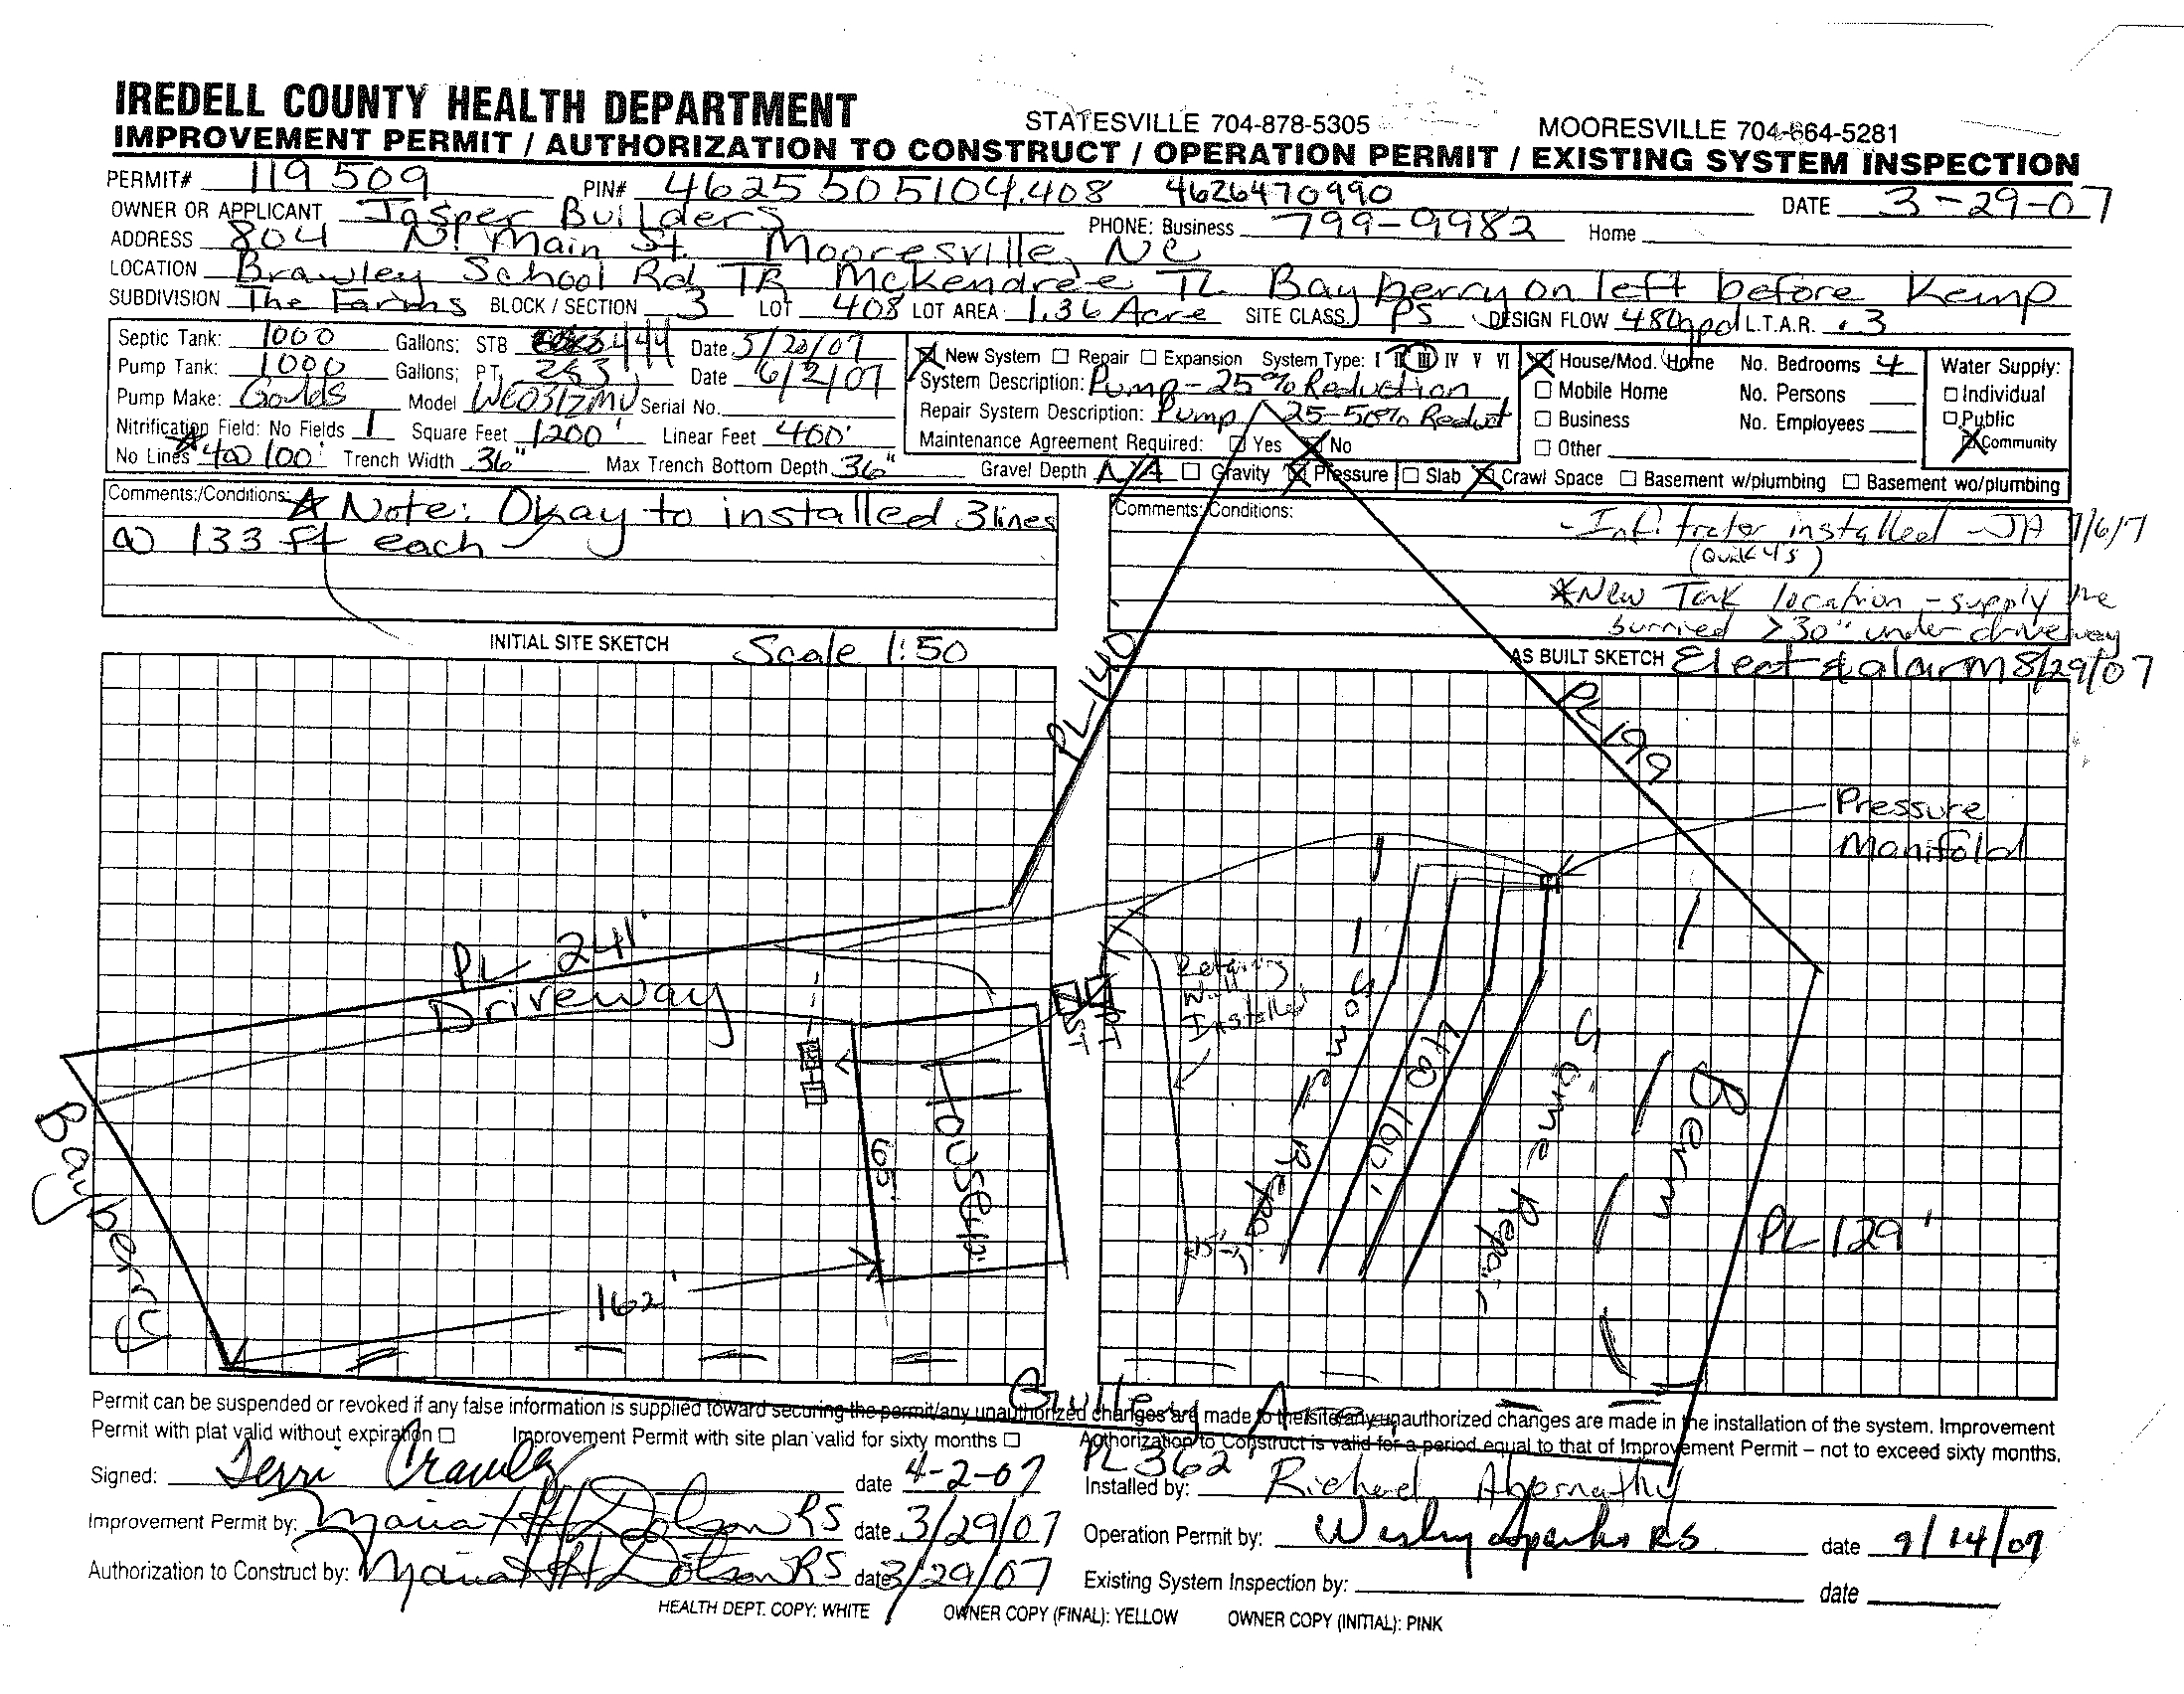 IREDELL COUNTY HEALTH DEPARTMENT STATESVILLE 704-878-5305 MOORESVILLE 704-664-5281
IMPROVEMENT PERMIT / AUTHORIZATION TO CONSTRUCT / OPERATION PERMIT / EXISTING SYSTEM INSPECTION
PERMIT# 119509 PIN# 4625505104.408 4626470990 DATE 3-29-07
OWNER OR APPLICANT Jasper Builders PHONE: Business 799-9982 Home
ADDRESS 804 N. Main St. Mooresville, NC
LOCATION Brawley School Rd, TR McKendree TL Bayberry on left before Kemp
SUBDIVISION The Farms BLOCK / SECTION 3 LOT 408 LOT AREA 1.36 Acre SITE CLASS PS DESIGN FLOW 480gpd L.T.A.R. .3
Septic Tank: 1000 Gallons; STB 444 Date 5/20/07
Pump Tank: 1000 Gallons; PT 253 Date 6/2/07
Pump Make: Goulds Model WE0312MU Serial No.
Nitrification Field: No Fields 1 Square Feet 1200' Linear Feet 400'
No Lines 4@100' Trench Width 36" Max Trench Bottom Depth 36" Gravel Depth N/A Gravity Pressure Slab Crawl Space Basement w/plumbing Basement wo/plumbing
New System Repair Expansion System Type: I II III IV V VI
System Description: Pump-25% Reduction
Repair System Description: Pump 25-50% Reduct
Maintenance Agreement Required: Yes No
House/Mod. Home No. Bedrooms 4
Mobile Home No. Persons
Business No. Employees
Other
Water Supply:
Individual
Public
Community
Comments:/Conditions: Note: Okay to installed 3 lines
@ 133 ft each
Comments:/Conditions: - Infiltrator installed - JA 7/6/7
(Quik 4's)
*New Tank location - supply line
burried >30" under driveway
INITIAL SITE SKETCH Scale 1:50
AS BUILT SKETCH Elect & alarm 8/29/07
PL-140'
PL 199
Pressure
Manifold
PL 241'
Driveway
Retaining
Wall
Installed
ST
PT
House
65'
4@100'
Some Repair
Some Repair
Berm
15'
Bayberry
162'
PL 129'
Gullery Area
PL 362'
Permit can be suspended or revoked if any false information is supplied toward securing the permit/any unauthorized changes are made to the site/any unauthorized changes are made in the installation of the system. Improvement
Permit with plat valid without expiration Improvement Permit with site plan valid for sixty months Authorization to Construct is valid for a period equal to that of Improvement Permit – not to exceed sixty months.
Signed: Terri Crawley date 4-2-07 Installed by: Richard Abernathy
Improvement Permit by: Maria H Dotson RS date 3/29/07 Operation Permit by: Wesley Sparks RS date 9/14/07
Authorization to Construct by: Maria H Dotson RS date 3/29/07 Existing System Inspection by: date
HEALTH DEPT. COPY: WHITE OWNER COPY (FINAL): YELLOW OWNER COPY (INITIAL): PINK